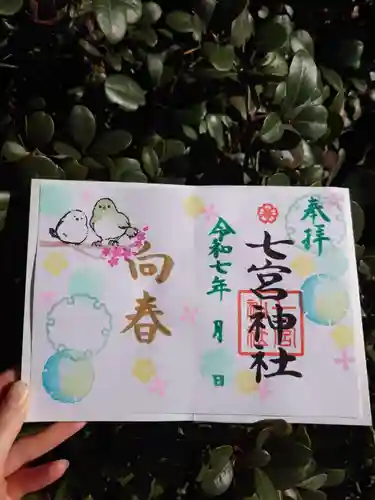 奉拝
七宮神社
令和七年 月 日
向春